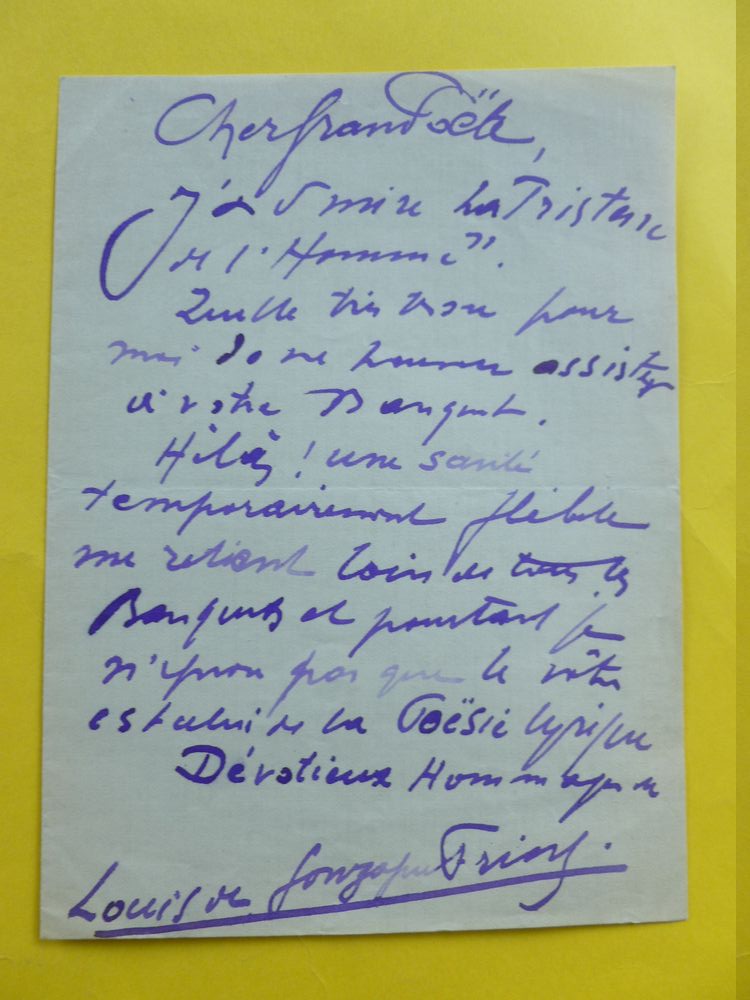 Cher Grand Poëte,
J'admire La Tristesse
de l'Homme".
Quelle tristesse pour
moi de ne pouvoir assister
à votre Banquet.
Hélas ! une santé
temporairement flébile
me retient loin de tous les
Banquets et pourtant je
n'ignore pas que le vôtre
est celui de la Poësie lyrique
Dévotieux Hommages de
Louis de Gonzague Frick.